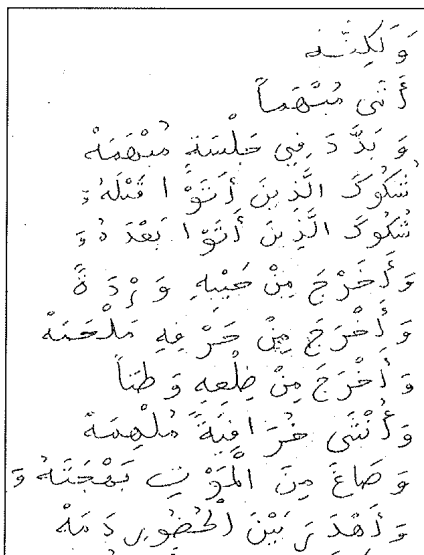 وَلَكِنَّهُ
أَتَى مُبْهَماً
وَبَدَّدَ فِي جَلْسَةٍ مُبْهَمَهْ
شُكُوكَ الَّذِينَ أَتَوْا قَبْلَهُ،
شُكُوكَ الَّذِينَ أَتَوْا بَعْدَهُ،
وَأَخْرَجَ مِنْ جَيْبِهِ وَرْدَةً
وَأَخْرَجَ مِنْ حَرْفِهِ مَلْحَمَهْ
وَأَخْرَجَ مِنْ ضِلْعِهِ وَطَناً
وَأُنْثَى خُرَافِيَّةً مُلْهِمَهْ
وَصَاغَ مِنَ الْمَوْتِ بَهْجَتَهُ،
وَأَهْدَرَ بَيْنَ الْحُضُورِ دَمَهْ